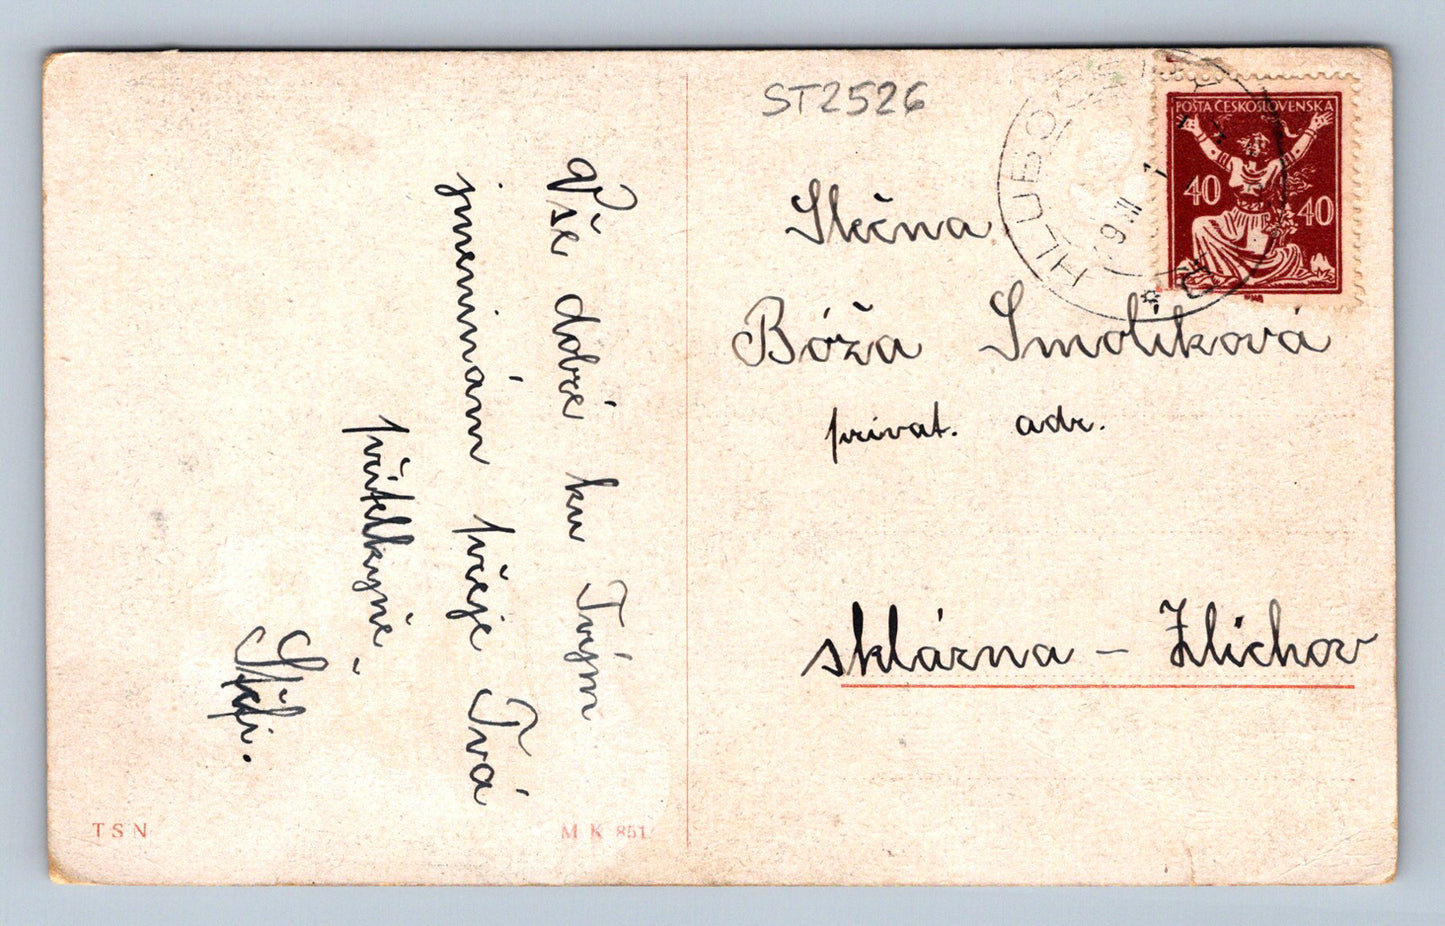 ST2526
POŠTA ČESKOSLOVENSKA
40 40
HLUBOČEPY
9.XII
Vše dobré ku Tvým
jmeninám přeje Tvá
přítelkyně
Slečna
Bóža Smolíková
privat. adr.
sklárna - Zlíchov
TSN
MK 851